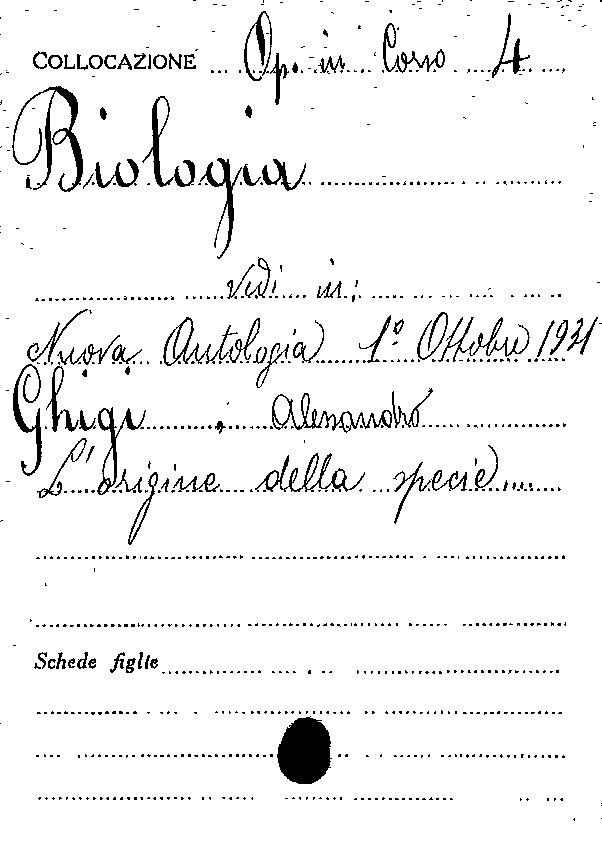 COLLOCAZIONE Op. in Corso 4
Biologia
vedi in:
Nuova Antologia 1º Ottobre 1931
Ghigi, Alessandro
L'origine della specie....
Schede figlie